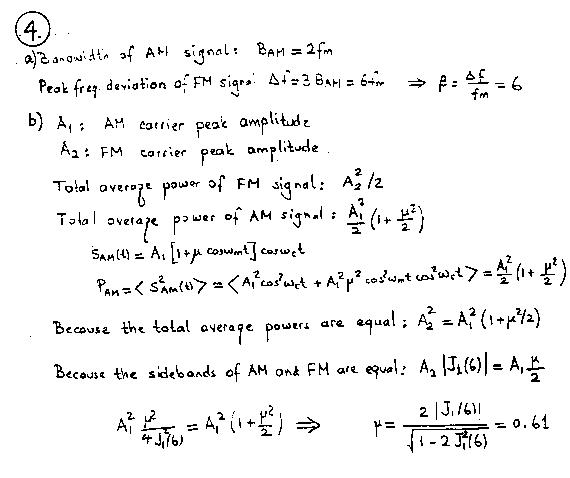 4.
a) Bandwidth of AM signal: B_AM = 2fm
Peak freq. deviation of FM signal Δf = 3 B_AM = 6fm ⇒ β = Δf/fm = 6
b) A₁ : AM carrier peak amplitude
A₂ : FM carrier peak amplitude.
Total average power of FM signal: A₂²/2
Total average power of AM signal : A₁²/2 (1 + μ²/2)
S_AM(t) = A₁ [1 + μ cosωmt] cosωct
P_AM = < S²_AM(t) > = < A₁² cos²ωct + A₁² μ² cos²ωmt cos²ωct > = A₁²/2 (1 + μ²/2)
Because the total average powers are equal ; A₂² = A₁² (1 + μ²/2)
Because the sidebands of AM and FM are equal: A₂ |J₁(6)| = A₁ μ/2
A₁² μ²/4J₁²(6) = A₁² (1 + μ²/2) ⇒ μ = 2|J₁(6)|/√(1 - 2J₁²(6)) = 0.61